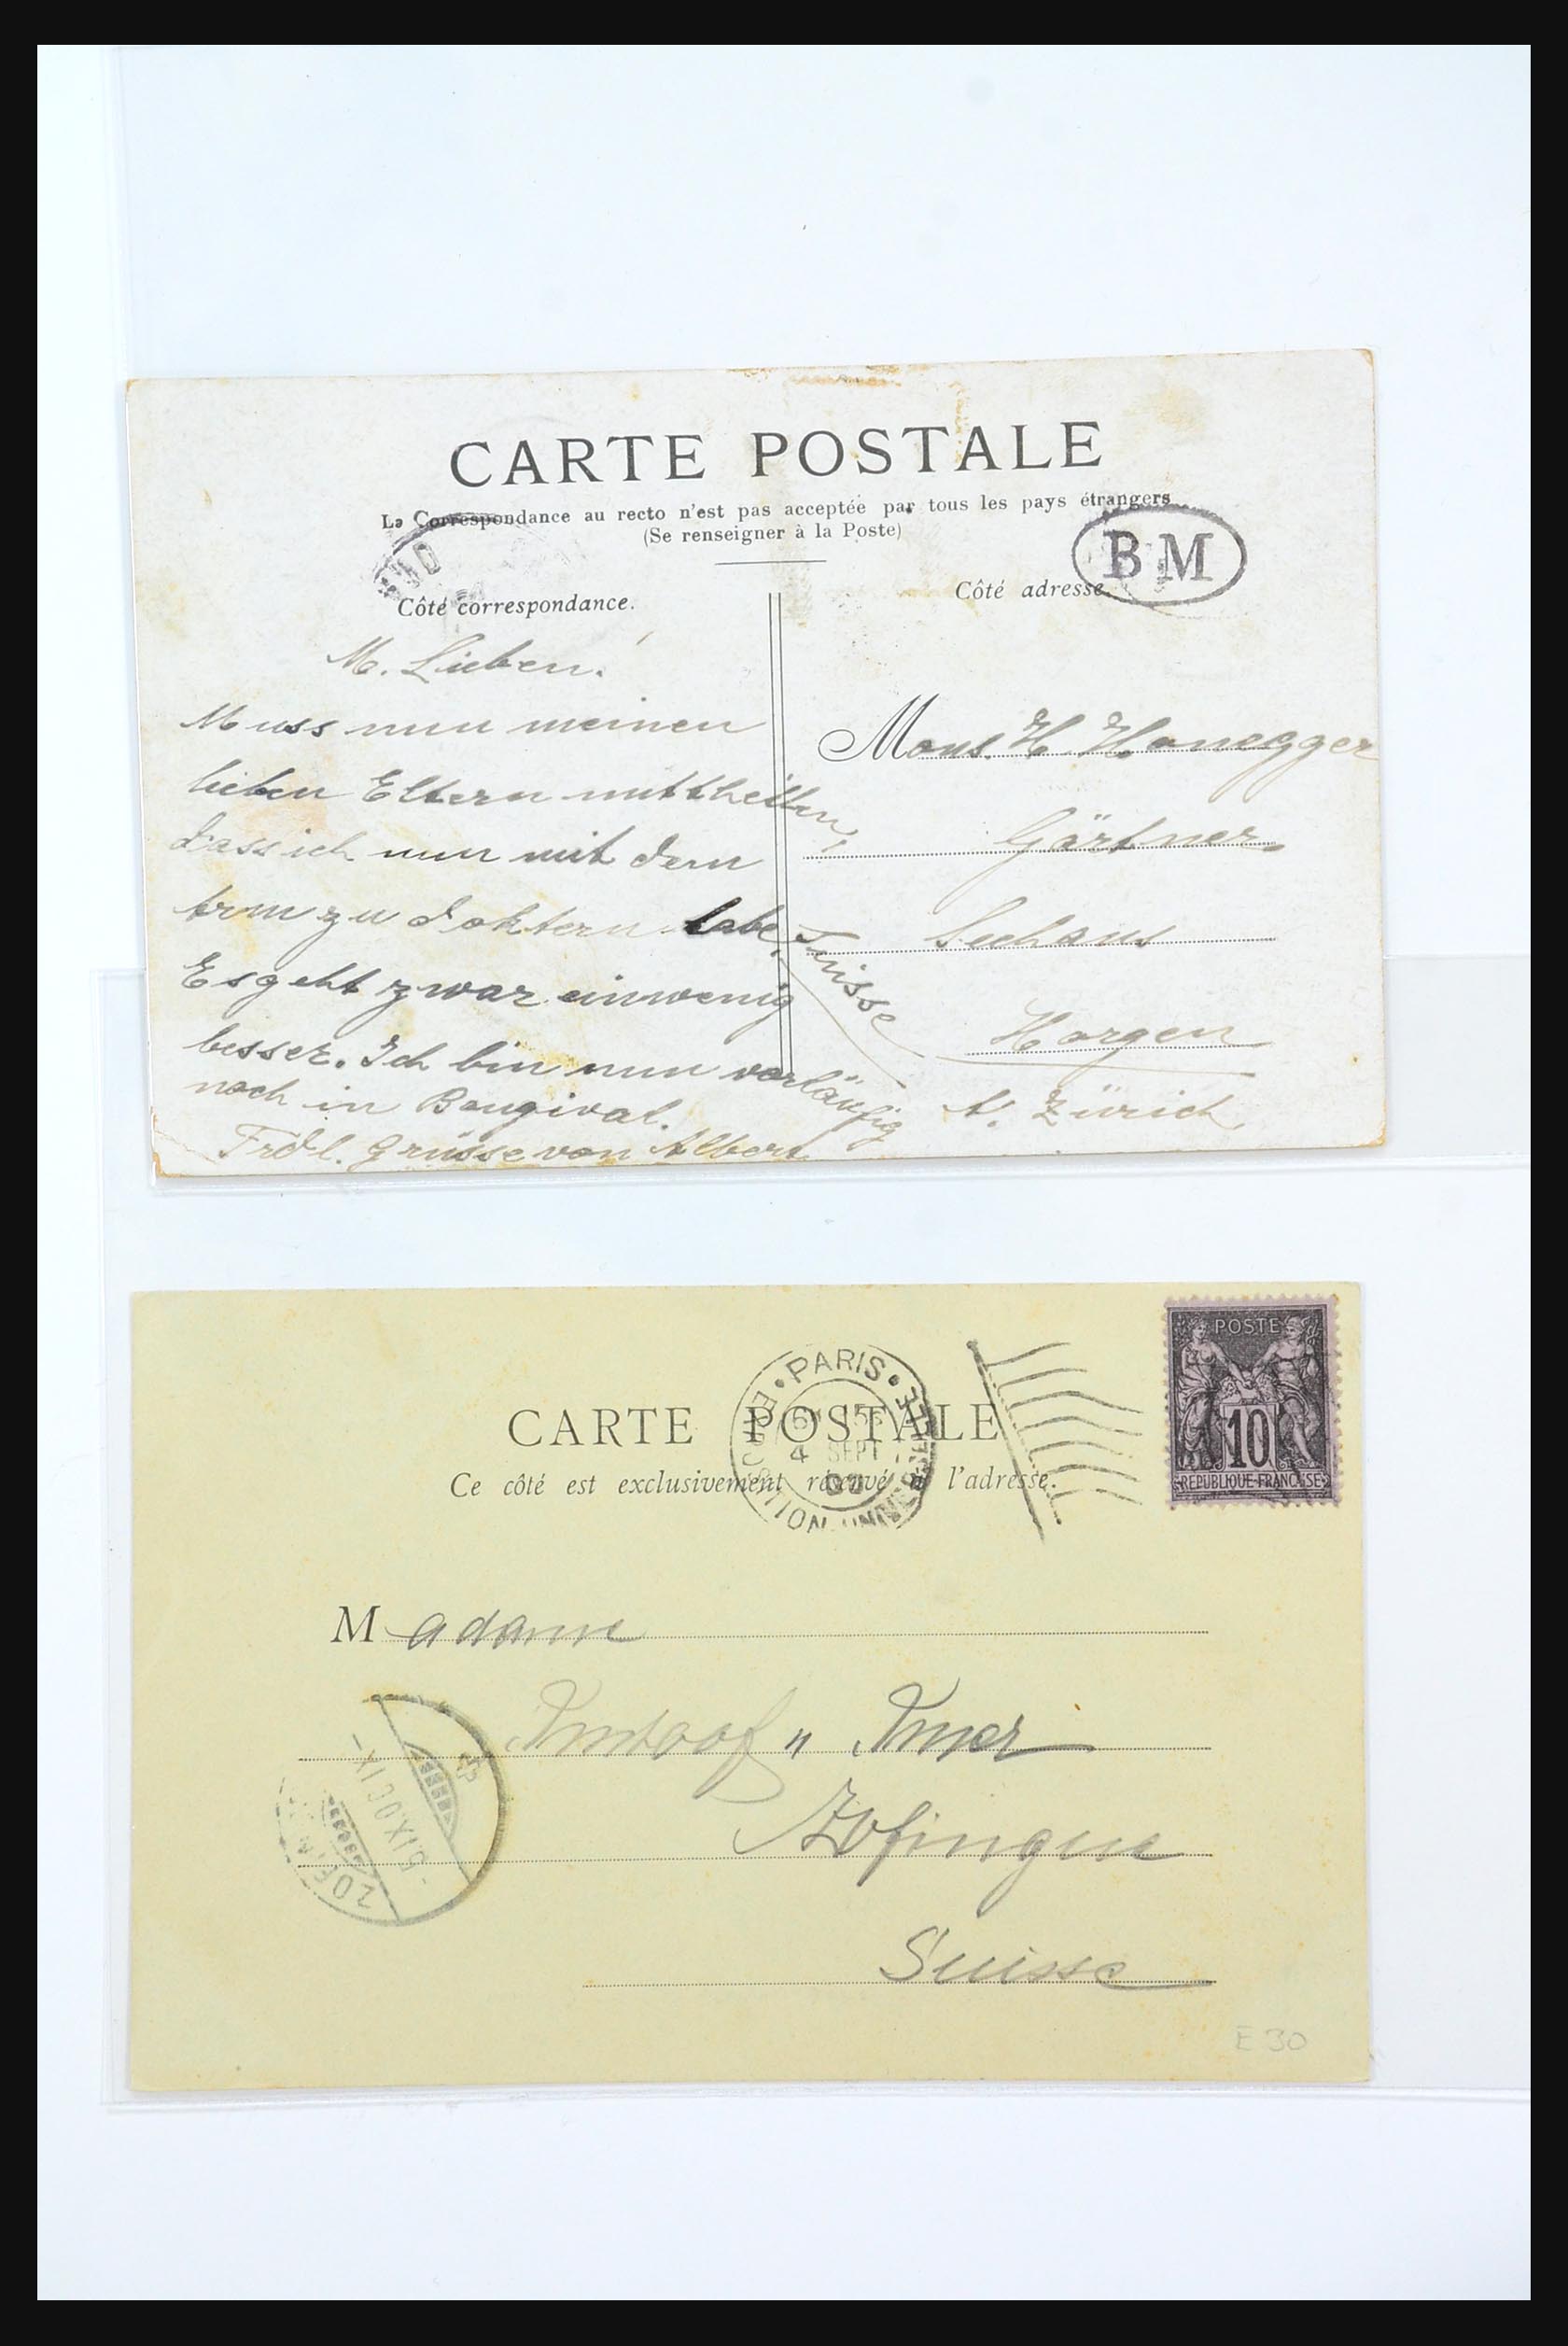 CARTE POSTALE
La Correspondance au recto n'est pas acceptée par tous les pays étrangers
(Se renseigner à la Poste)
BM
Côté correspondance.
Côté adresse
M. Lieben!
Muss nun meinen
lieben Eltern mittheillen,
dass ich nun mit dem
Arm zu doktern habe.
Es geht zwar einwenig
besser. Ich bin nun vorläufig
noch in Bougival.
Frdl. Grüsse von Albert
Mons. H. Honegger
Gärtner
Seehaus
Horgen
Kt. Zürich
Suisse
POSTE
10
REPUBLIQUE FRANCAISE
PARIS
EXPOSITION UNIVERSELLE
4 SEPT
CARTE POSTALE
Ce côté est exclusivement réservé à l'adresse.
Madame
Zofingue
Suisse
5.IX.00.IX
ZOFINGEN
E 30